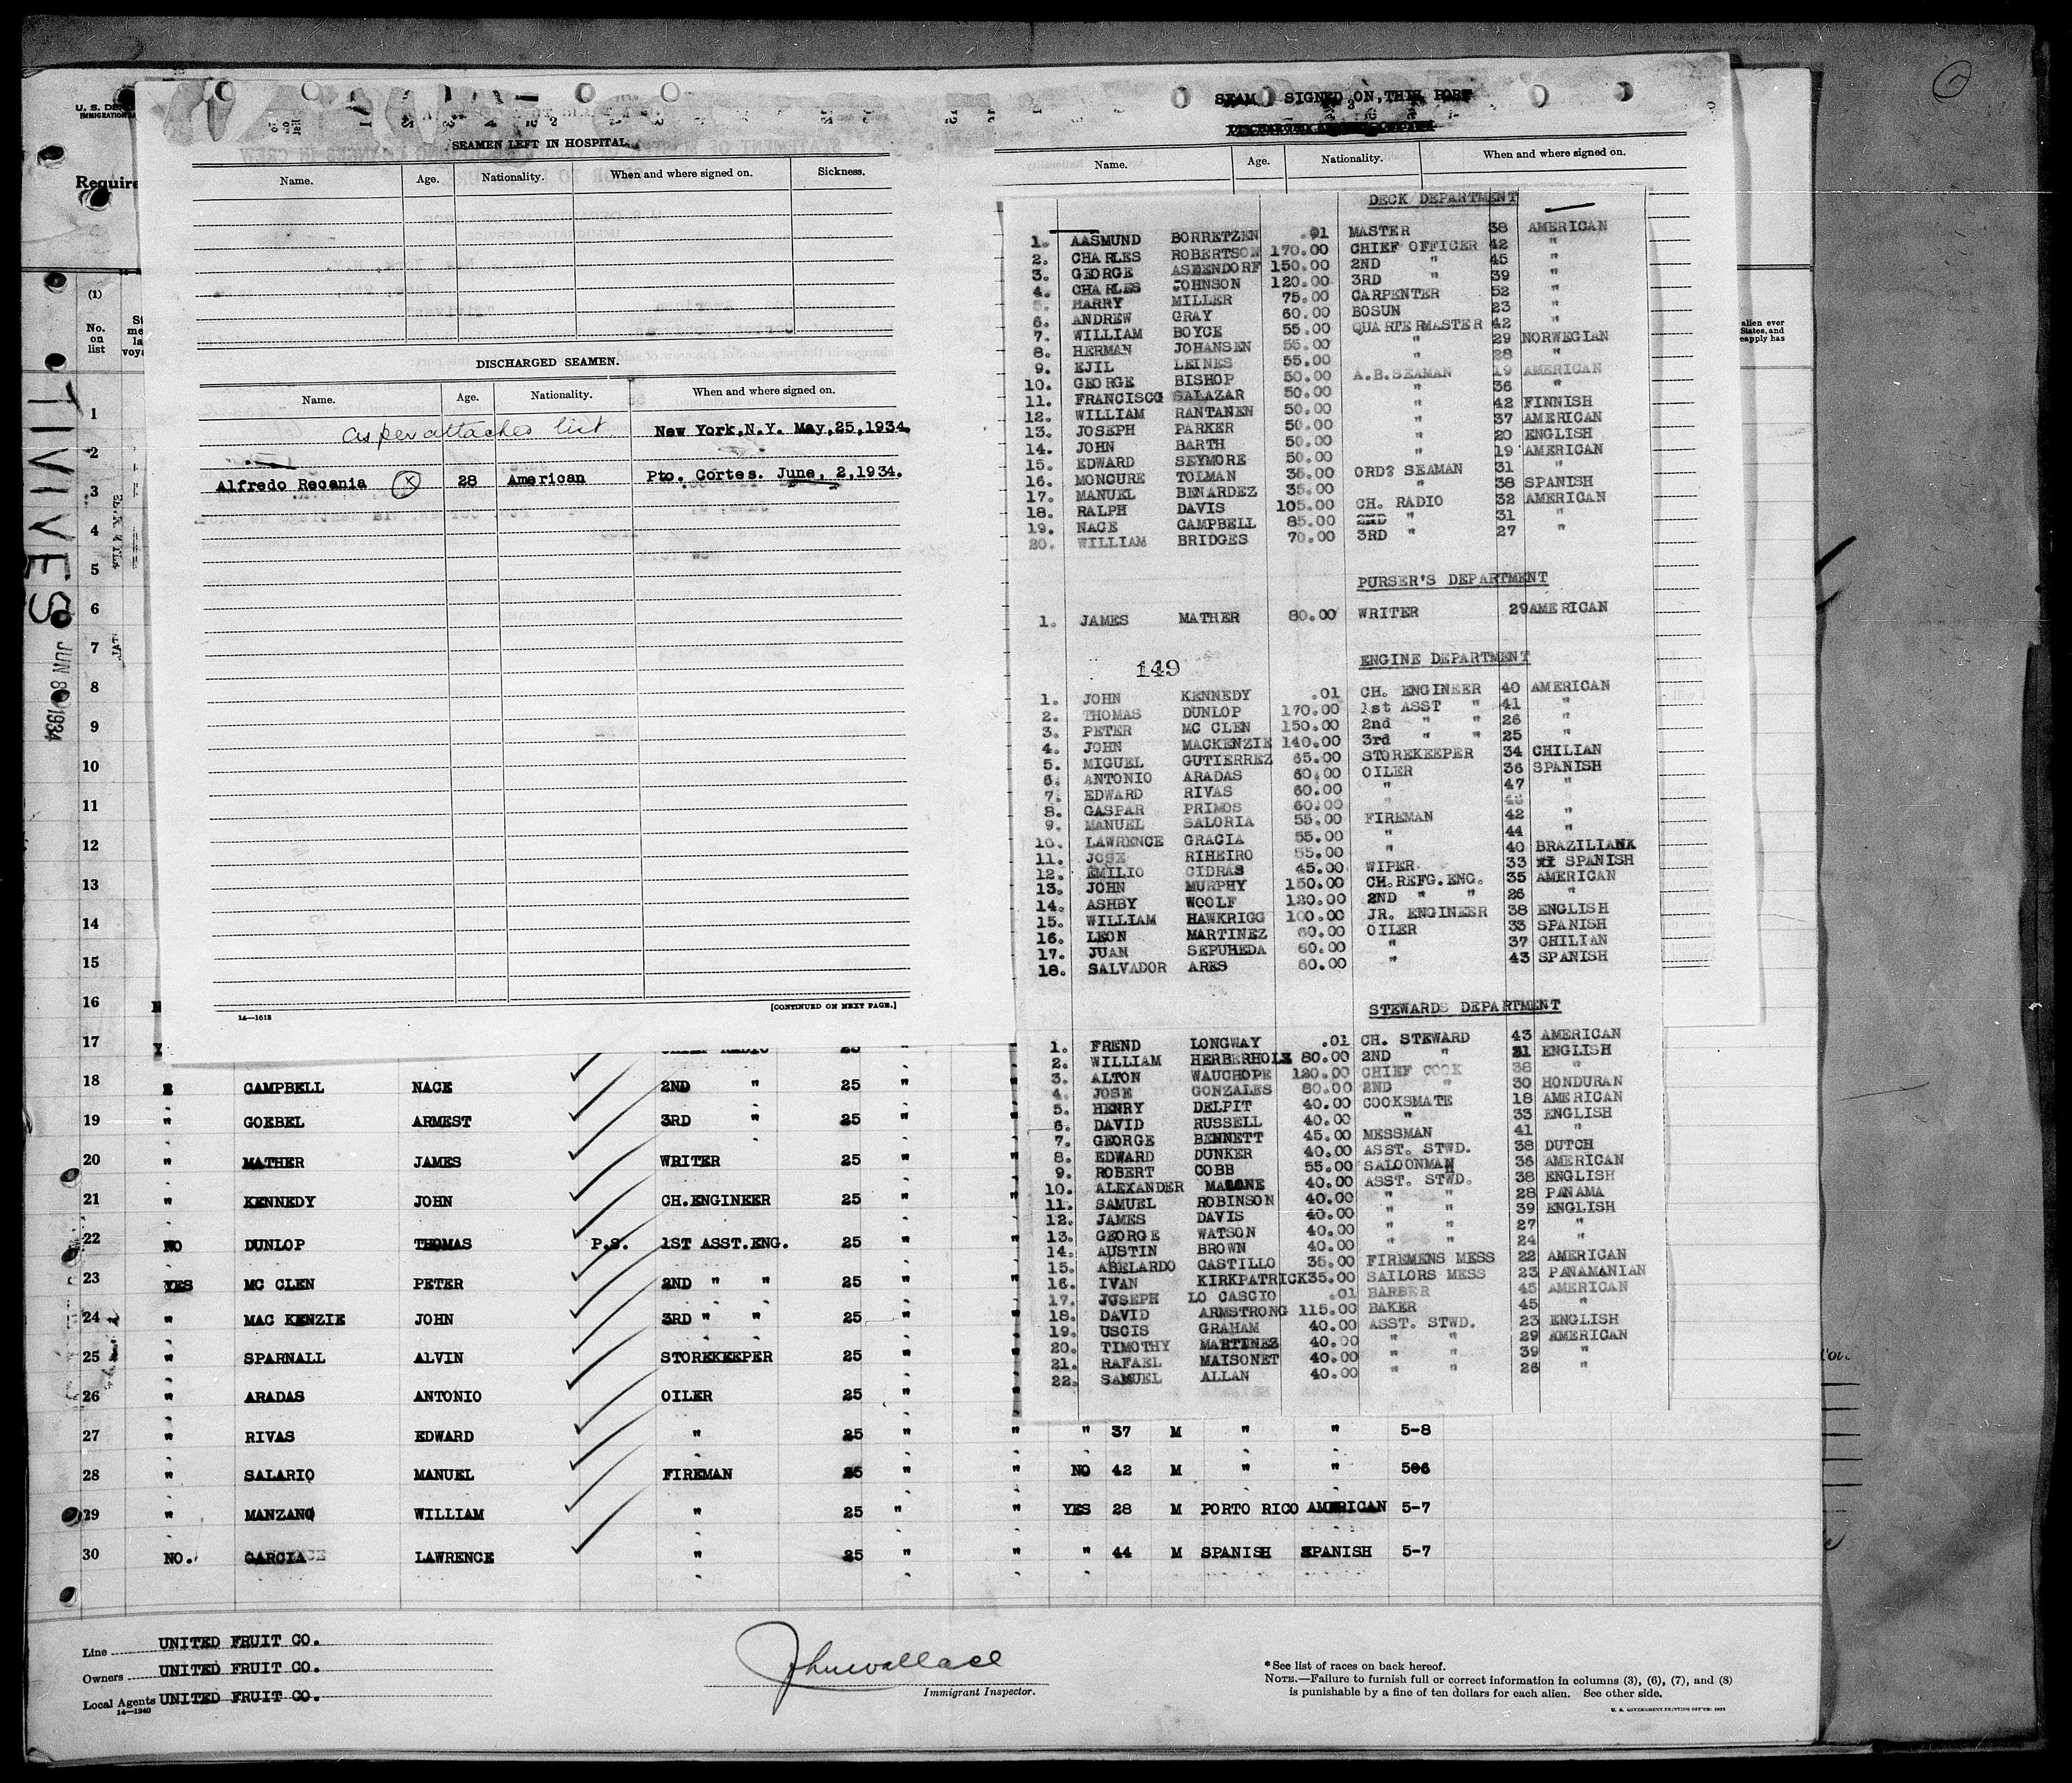 U. S. DE
IMMIGRATION
Require
(1)
No.
on
list
TIVIVES
JUN 8 1934
SEAMEN LEFT IN HOSPITAL.
Name. Age. Nationality. When and where signed on. Sickness.
DISCHARGED SEAMEN.
Name. Age. Nationality. When and where signed on.
as per attached list New York,N.Y. May,25,1934.
Alfredo Recania X 28 American Pto. Cortes. June, 2,1934.
[CONTINUED ON NEXT PAGE.]
14—1613
SEAM SIGNED ON, THIS PORT
Name. Age. Nationality. When and where signed on.
DECK DEPARTMENT
1. AASMUND BORRETZEN .01 MASTER 38 AMERICAN
2. CHARLES ROBERTSON 170.00 CHIEF OFFICER 42 "
3. GEORGE ASENDORF 150.00 2ND " 45 "
4. CHARLES JOHNSON 120.00 3RD " 39 "
5. HARRY MILLER 75.00 CARPENTER 52 "
6. ANDREW GRAY 60.00 BOSUN 23 "
7. WILLIAM BOYCE 55.00 QUARTERMASTER 42 "
8. HERMAN JOHANSEN 55.00 " 29 NORWEGIAN
9. EJIL LEINES 55.00 " 28 "
10. GEORGE BISHOP 50.00 A.B.SEAMAN 19 AMERICAN
11. FRANCISCO SALAZAR 50.00 " 36 "
12. WILLIAM RANTANEN 50.00 " 42 FINNISH
13. JOSEPH PARKER 50.00 " 37 AMERICAN
14. JOHN BARTH 50.00 " 20 ENGLISH
15. EDWARD SEYMORE 50.00 " 19 AMERICAN
16. MONCURE TOLMAN 35.00 ORD? SEAMAN 31 "
17. MANUEL BENARDEZ 35.00 " 38 SPANISH
18. RALPH DAVIS 105.00 CH. RADIO 32 AMERICAN
19. NACE CAMPBELL 85.00 2ND " 31 "
20. WILLIAM BRIDGES 70.00 3RD " 27 "
PURSER'S DEPARTMENT
1. JAMES MATHER 80.00 WRITER 29 AMERICAN
149
ENGINE DEPARTMENT
1. JOHN KENNEDY .01 CH. ENGINEER 40 AMERICAN
2. THOMAS DUNLOP 170.00 1st ASST " 41 "
3. PETER MC CLEN 150.00 2nd " " 26 "
4. JOHN MACKENZIE 140.00 3rd " " 25 "
5. MIGUEL GUTIERREZ 65.00 STOREKEEPER 34 CHILIAN
6. ANTONIO ARADAS 60.00 OILER 36 SPANISH
7. EDWARD RIVAS 60.00 " 47 "
8. GASPAR PRIMOS 60.00 "
9. MANUEL SALORIA 55.00 FIREMAN 42 "
10. LAWRENCE GRACIA 55.00 " 44 "
11. JOSE RIHEIRO 55.00 " 40 BRAZILIANX
12. EMILIO CIDRAS 45.00 WIPER 33 SPANISH
13. JOHN MURPHY 150.00 CH.REFG.ENG. 35 AMERICAN
14. ASHBY WOOLF 120.00 2ND " " 26 "
15. WILLIAM HAWKRIGG 100.00 JR. ENGINEER 38 ENGLISH
16. LEON MARTINEZ 60.00 OILER 33 SPANISH
17. JUAN SEPUHEDA 60.00 " 37 CHILIAN
18. SALVADOR ARES 60.00 " 43 SPANISH
STEWARDS DEPARTMENT
1. FREND LONGWAY .01 CH. STEWARD 43 AMERICAN
2. WILLIAM HERBERHOLZ 80.00 2ND " 31 ENGLISH
3. ALTON WAUCHOPE 120.00 CHIEF COOK 38 "
4. JOSE GONZALES 80.00 2ND " 30 HONDURAN
5. HENRY DELPIT 40.00 COOKSMATE 18 AMERICAN
6. DAVID RUSSELL 40.00 " 33 ENGLISH
7. GEORGE BENNETT 45.00 MESSMAN 41 "
8. EDWARD DUNKER 40.00 ASST. STWD. 38 DUTCH
9. ROBERT COBB 55.00 SALOONMAN 36 AMERICAN
10. ALEXANDER MALONE 40.00 ASST. STWD. 38 ENGLISH
11. SAMUEL ROBINSON 40.00 " " 28 PANAMA
12. JAMES DAVIS 40.00 " " 39 ENGLISH
13. GEORGE WATSON 40.00 " " 27 "
14. AUSTIN BROWN 40.00 " " 24 "
15. ABELARDO CASTILLO 35.00 FIREMENS MESS 22 AMERICAN
16. IVAN KIRKPATRICK 35.00 SAILORS MESS 23 PANAMANIAN
17. JOSEPH LO CASCIO .01 BARBER 45 AMERICAN
18. DAVID ARMSTRONG 115.00 BAKER 45 "
19. USCIS GRAHAM 40.00 ASST. STWD. 23 ENGLISH
20. TIMOTHY MARTINEZ 40.00 " " 29 AMERICAN
21. RAFAEL MAISONET 40.00 " " 39 "
22. SAMUEL ALLAN 40.00 " " 26 "
alien ever
States, and
reapply has
1
2
3
4
5
6
7
8
9
10
11
12
13
14
15
16
17 CHIEF RADIO 25 "
18 CAMPBELL NACE 2ND " 25 "
19 " GOEBEL ARMEST 3RD " 25 "
20 " MATHER JAMES WRITER 25 "
21 " KENNEDY JOHN CH.ENGINEER 25 "
22 NO DUNLOP THOMAS P.S. 1ST ASST.ENG. 25 "
23 YES MC CLEN PETER 2ND " " 25 "
24 " MAC KENZIE JOHN 3RD " " 25 "
25 " SPARNALL ALVIN STOREKEEPER 25 "
26 " ARADAS ANTONIO OILER 25 "
27 " RIVAS EDWARD " 25 " " " 37 M " " 5-8
28 " SALARIO MANUEL FIREMAN 25 " " NO 42 M " " 506
29 " MANZANO WILLIAM " 25 " " YES 28 M PORTO RICO AMERICAN 5-7
30 NO. GARCIA LAWRENCE " 25 " " " 44 M SPANISH SPANISH 5-7
Line UNITED FRUIT CO.
Owners UNITED FRUIT CO.
Local Agents UNITED FRUIT CO.
14—1240
John Wallace
Immigrant Inspector.
* See list of races on back hereof.
NOTE.—Failure to furnish full or correct information in columns (3), (6), (7), and (8)
is punishable by a fine of ten dollars for each alien. See other side.
U. S. GOVERNMENT PRINTING OFFICE: 1933